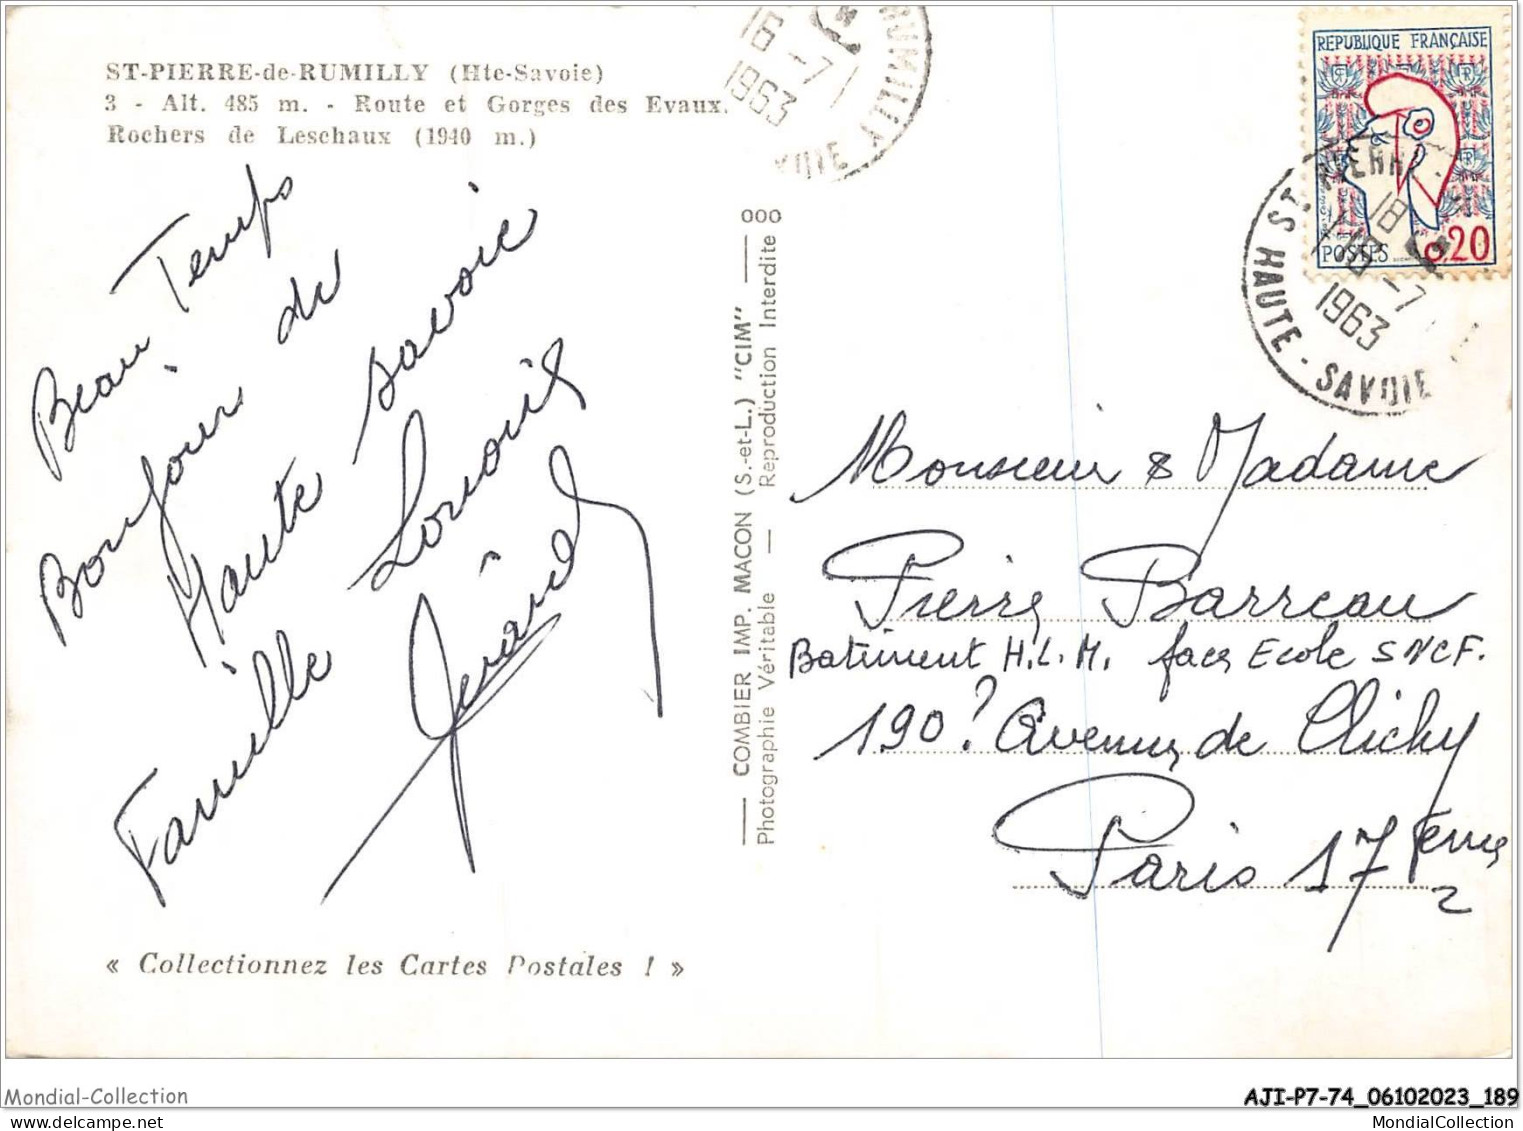 ST-PIERRE-de-RUMILLY (Hte-Savoie)
3 - Alt. 485 m. - Route et Gorges des Evaux.
Rochers de Leschaux (1940 m.)
Beau Temps
Bonjour de
Haute savoie
Famille
Gérard
« Collectionnez les Cartes Postales ! »
000
COMBIER IMP. MACON (S.-et-L.) "CIM"
Photographie Véritable — Reproduction Interdite
RUMILLY
18
16 -7
1963
SAVOIE
REPUBLIQUE FRANÇAISE
POSTES 0.20
ST PIERRE
18
16 -7
1963
HAUTE-SAVOIE
Monsieur & Madame
Pierre Barreau
Batiment H.L.M. face Ecole SNCF.
190? Avenue de Clichy
Paris 17eme
Mondial-Collection
mondialcollection@live.fr
AJI-P7-74_06102023_189
MondialCollection